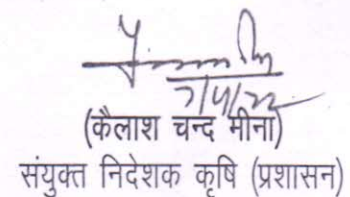 7/4/22
(कैलाश चन्द मीना)
संयुक्त निदेशक कृषि (प्रशासन)